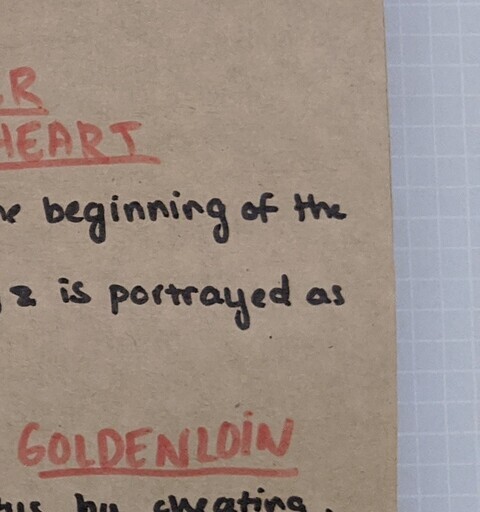 HEART
beginning of the
is portrayed as
GOLDENLOIN
by cheating.